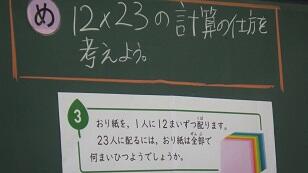 め
12×23の計算の仕方を
考えよう。
3
おり紙を、1人に12まいずつ配ります。
23人に配るには、おり紙は全部で
何まいひつようでしょうか。